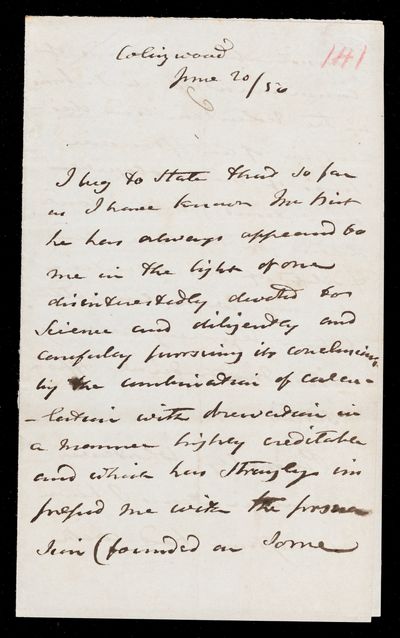 Collingwood
141
June 20/56
I beg to state that so far
as I have known Mr
he has always appeared to
me in the light of one
disinterestedly devoted to
Science and diligently and
carefully pursuing its conclusions
by the combination of calcu-
-lation with observation in
a manner highly creditable
and which has strongly im
pressed me with the persua
sion (founded on some